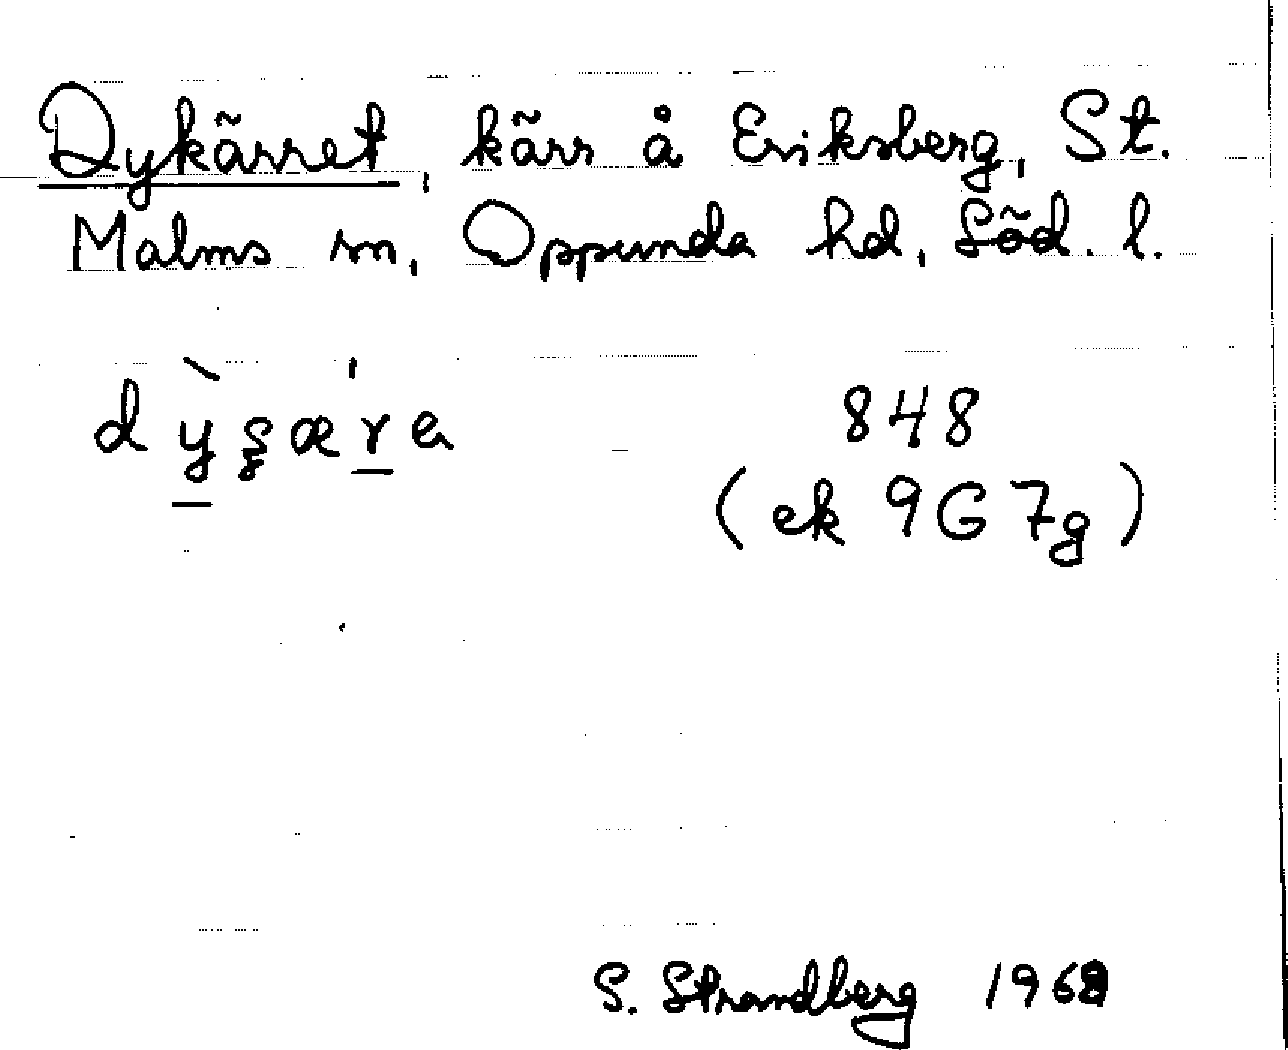 Dykärret, kärr å Eriksberg, St.
Malms sn, Oppunda hd, Söd. l.
848
(ek 9G 7g)
S. Strandberg